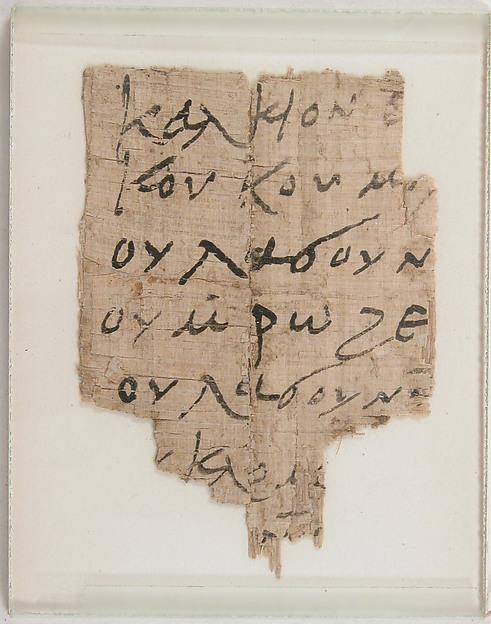 καλκιον
κουκουμ
ουλασουν
ουμρωζε
ουλασουν
κλομ